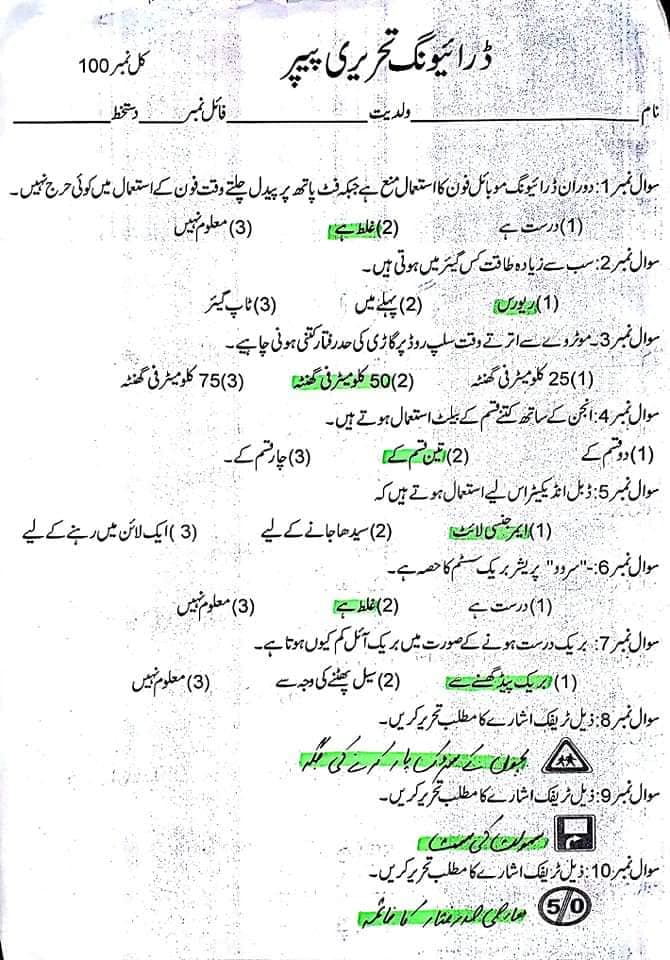 ڈرائیونگ تحریری پیپر
کل نمبر 100
نام ولدیت فائل نمبر دستخط
سوال نمبر 1: دوران ڈرائیونگ موبائل فون کا استعمال منع ہے جبکہ فٹ پاتھ پر پیدل چلتے وقت فون کے استعمال میں کوئی حرج نہیں۔
(1) درست ہے (2) غلط ہے (3) معلوم نہیں
سوال نمبر 2: سب سے زیادہ طاقت کس گیئر میں ہوتی ہیں۔
(1) ریورس (2) پہلے میں (3) ٹاپ گیئر
سوال نمبر 3۔ موٹروے سے اترتے وقت سلپ روڈ پر گاڑی کی حد رفتار کتنی ہونی چاہیے۔
(1) 25 کلومیٹر فی گھنٹہ (2) 50 کلومیٹر فی گھنٹہ (3) 75 کلومیٹر فی گھنٹہ
سوال نمبر 4: انجن کے ساتھ کتنے قسم کے بیلٹ استعمال ہوتے ہیں۔
(1) دو قسم کے (2) تین قسم کے (3) چار قسم کے۔
سوال نمبر 5: ڈبل انڈیکیٹر اس لیے استعمال ہوتے ہیں کہ
(1) ایمرجنسی لائٹ (2) سیدھا جانے کے لیے (3) ایک لائن میں رہنے کے لیے
سوال نمبر 6:-"سروو" پریشر بریک سسٹم کا حصہ ہے۔
(1) درست ہے (2) غلط ہے (3) معلوم نہیں
سوال نمبر 7: بریک درست ہونے کے صورت میں بریک آئل کم کیوں ہوتا ہے۔
(1) بریک پیڈ گھسنے سے (2) سیل پھٹنے کی وجہ سے (3) معلوم نہیں
سوال نمبر 8: ذیل ٹریفک اشارے کا مطلب تحریر کریں۔
بچوں کے سڑک پار کرنے کی جگہ
سوال نمبر 9: ذیل ٹریفک اشارے کا مطلب تحریر کریں۔
سہولت کی سمت
سوال نمبر 10: ذیل ٹریفک اشارے کا مطلب تحریر کریں۔
50
عارضی حد رفتار کا خاتمہ